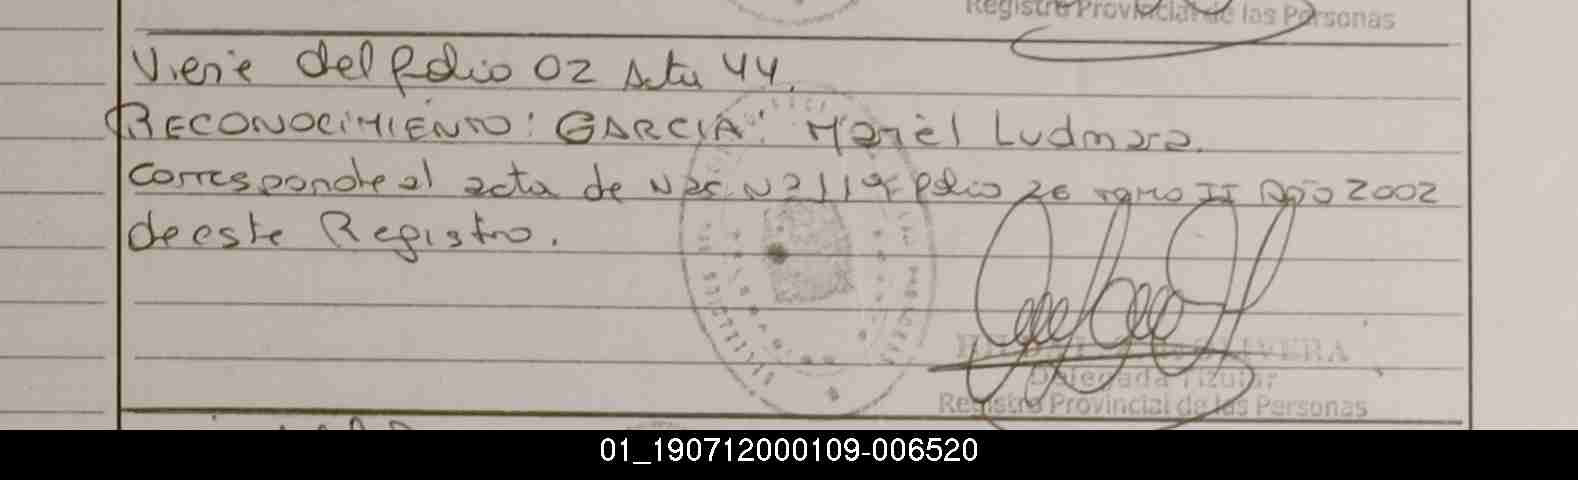 Registro Provincial de las Personas
Viene del folio 02 Acta 44.
RECONOCIMIENTO: GARCIA: Mariel Ludmara.
Corresponde al acta de Nac. Nº 119 folio 26 tomo II Año 2002
de este Registro.
OLIVERA
Delegada Titular
Registro Provincial de las Personas
01_190712000109-006520